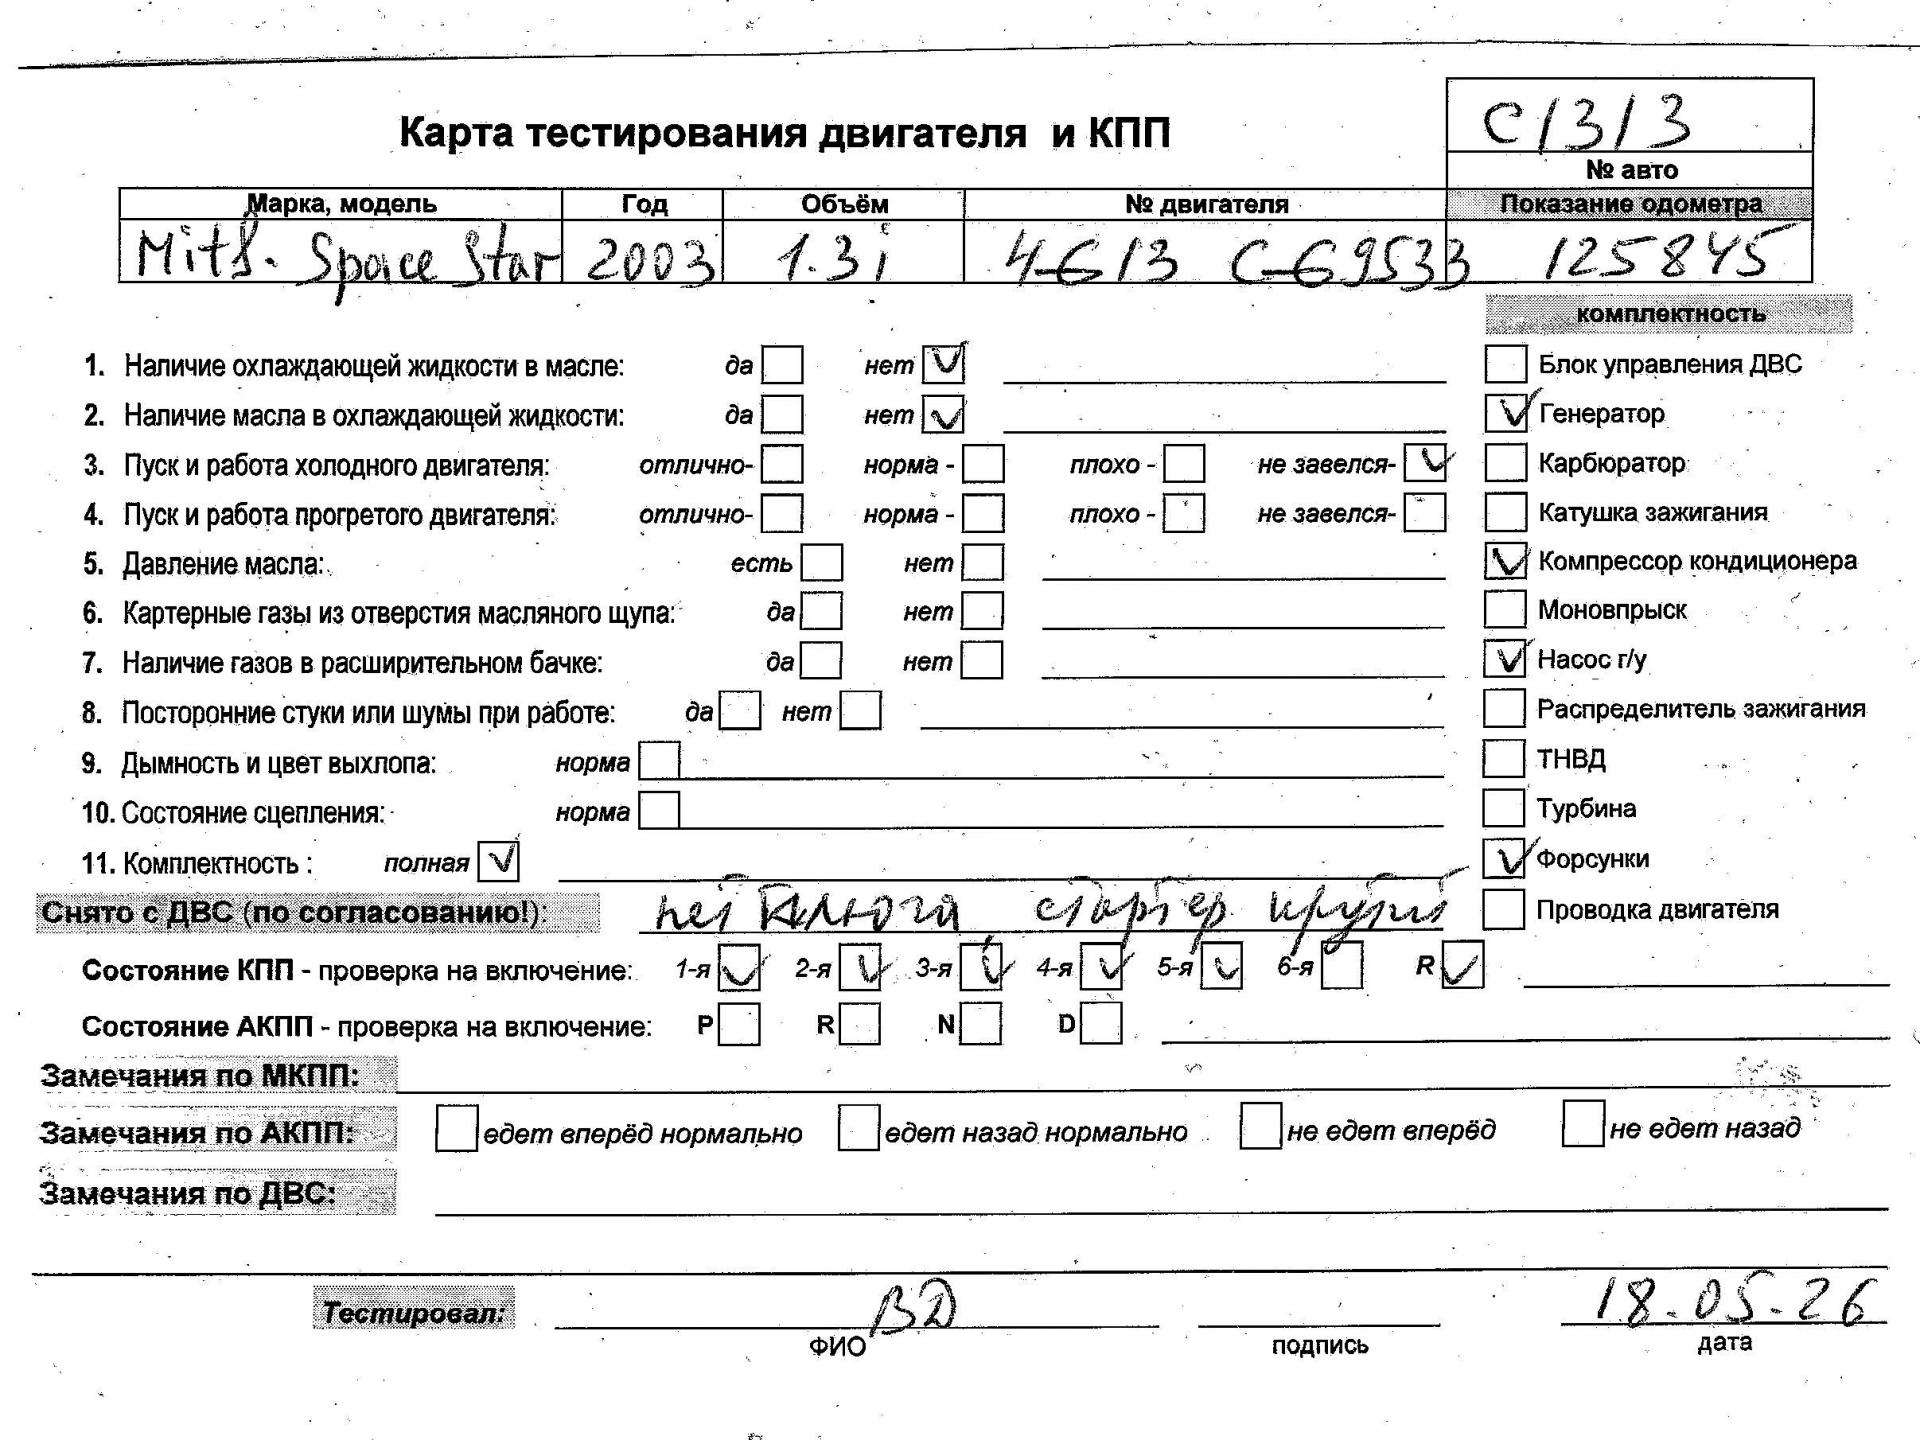 С1313
Карта тестирования двигателя и КПП
№ авто
Марка, модель Год Объём № двигателя Показание одометра
Mits. Space Star 2003 1.3i 4G13 CG9533 125845
комплектность
1. Наличие охлаждающей жидкости в масле: да нет Блок управления ДВС
2. Наличие масла в охлаждающей жидкости: да нет Генератор
3. Пуск и работа холодного двигателя: отлично- норма - плохо - не завелся- Карбюратор
4. Пуск и работа прогретого двигателя: отлично- норма - плохо - не завелся- Катушка зажигания
5. Давление масла: есть нет Компрессор кондиционера
6. Картерные газы из отверстия масляного щупа: да нет Моновпрыск
7. Наличие газов в расширительном бачке: да нет Насос г/у
8. Посторонние стуки или шумы при работе: да нет Распределитель зажигания
9. Дымность и цвет выхлопа: норма ТНВД
10. Состояние сцепления: норма Турбина
11. Комплектность : полная Форсунки
Снято с ДВС (по согласованию!): нет ключа, стартер крутит Проводка двигателя
Состояние КПП - проверка на включение: 1-я 2-я 3-я 4-я 5-я 6-я R
Состояние АКПП - проверка на включение: P R N D
Замечания по МКПП:
Замечания по АКПП: едет вперёд нормально едет назад нормально не едет вперёд не едет назад
Замечания по ДВС:
Тестировал: ВД 18.05.26
ФИО подпись дата